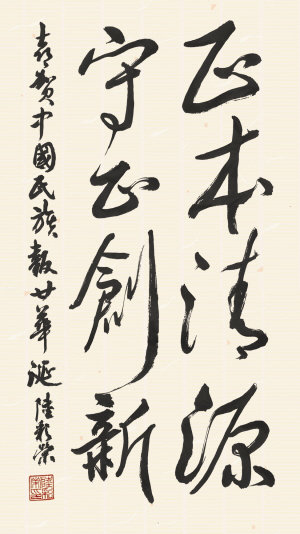 正本清源
守正創新
喜賀中國民族報廿華誕 陸彩榮